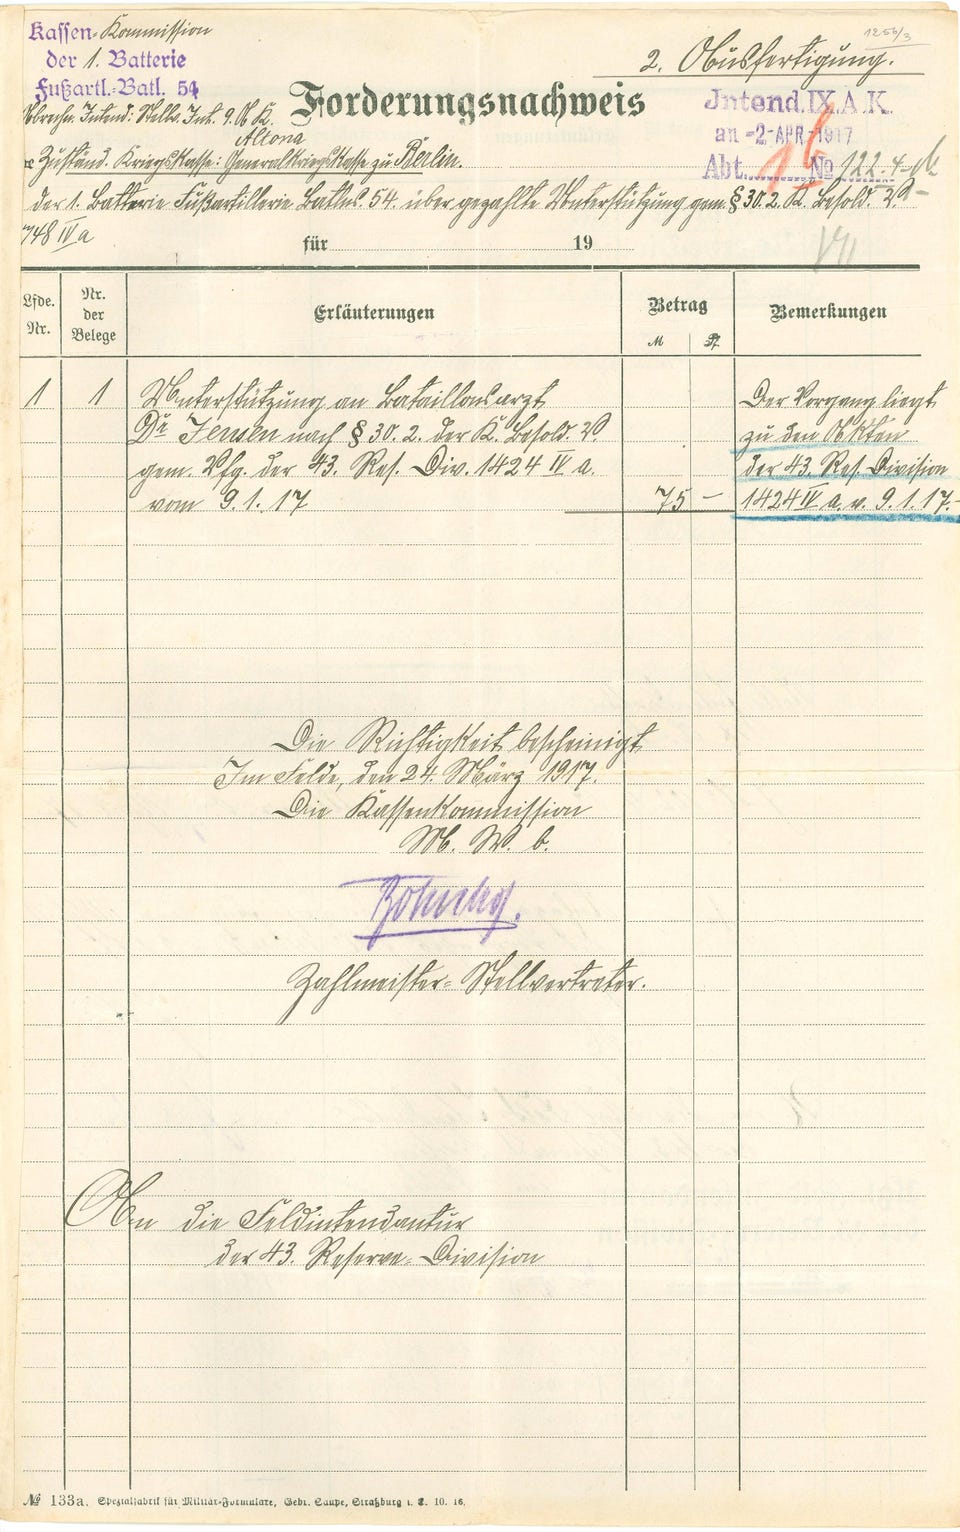 Kassen-Kommission
der 1. Batterie
Fußartl.-Batl. 54
1256/3
2. Ausfertigung.
Forderungsnachweis
Abrechn. Intend: Stellv. Int. 9. A. K.
Altona
Jntend. IX. A. K.
an -2. APR. 1917
Abt. № 122.4.
Zuständ. Kriegskasse: Generalkriegskasse zu Berlin.
der 1. Batterie Fußartillerie Batls. 54. über gezahlte Unterstützung gem. § 30.2. K. Besold. V.
748 IVa
für 19
VII
Lfde. Nr.
Nr. der Belege
Erläuterungen
Betrag
M ₰
Bemerkungen
1 1 Unterstützung an Bataillonsarzt
Dr Jensen nach § 30.2. der K. Besold. V.
gem. Vfg. der 43. Res. Div. 1424 IV a.
vom 9.1.17 75 –
Der Vorgang liegt
zu den Akten
der 43. Res. Division
1424 IV a. v. 9.1.17.
Die Richtigkeit bescheinigt
Im Felde, den 24. März 1917.
Die Kassenkommission
M. W. b.
Zahlmeister-Stellvertreter.
An die Feldintendantur
der 43. Reserve-Division
№ 133a. Spezialfabrik für Militär-Formulare, Gebr. Saupe, Straßburg i. E. 10. 16.